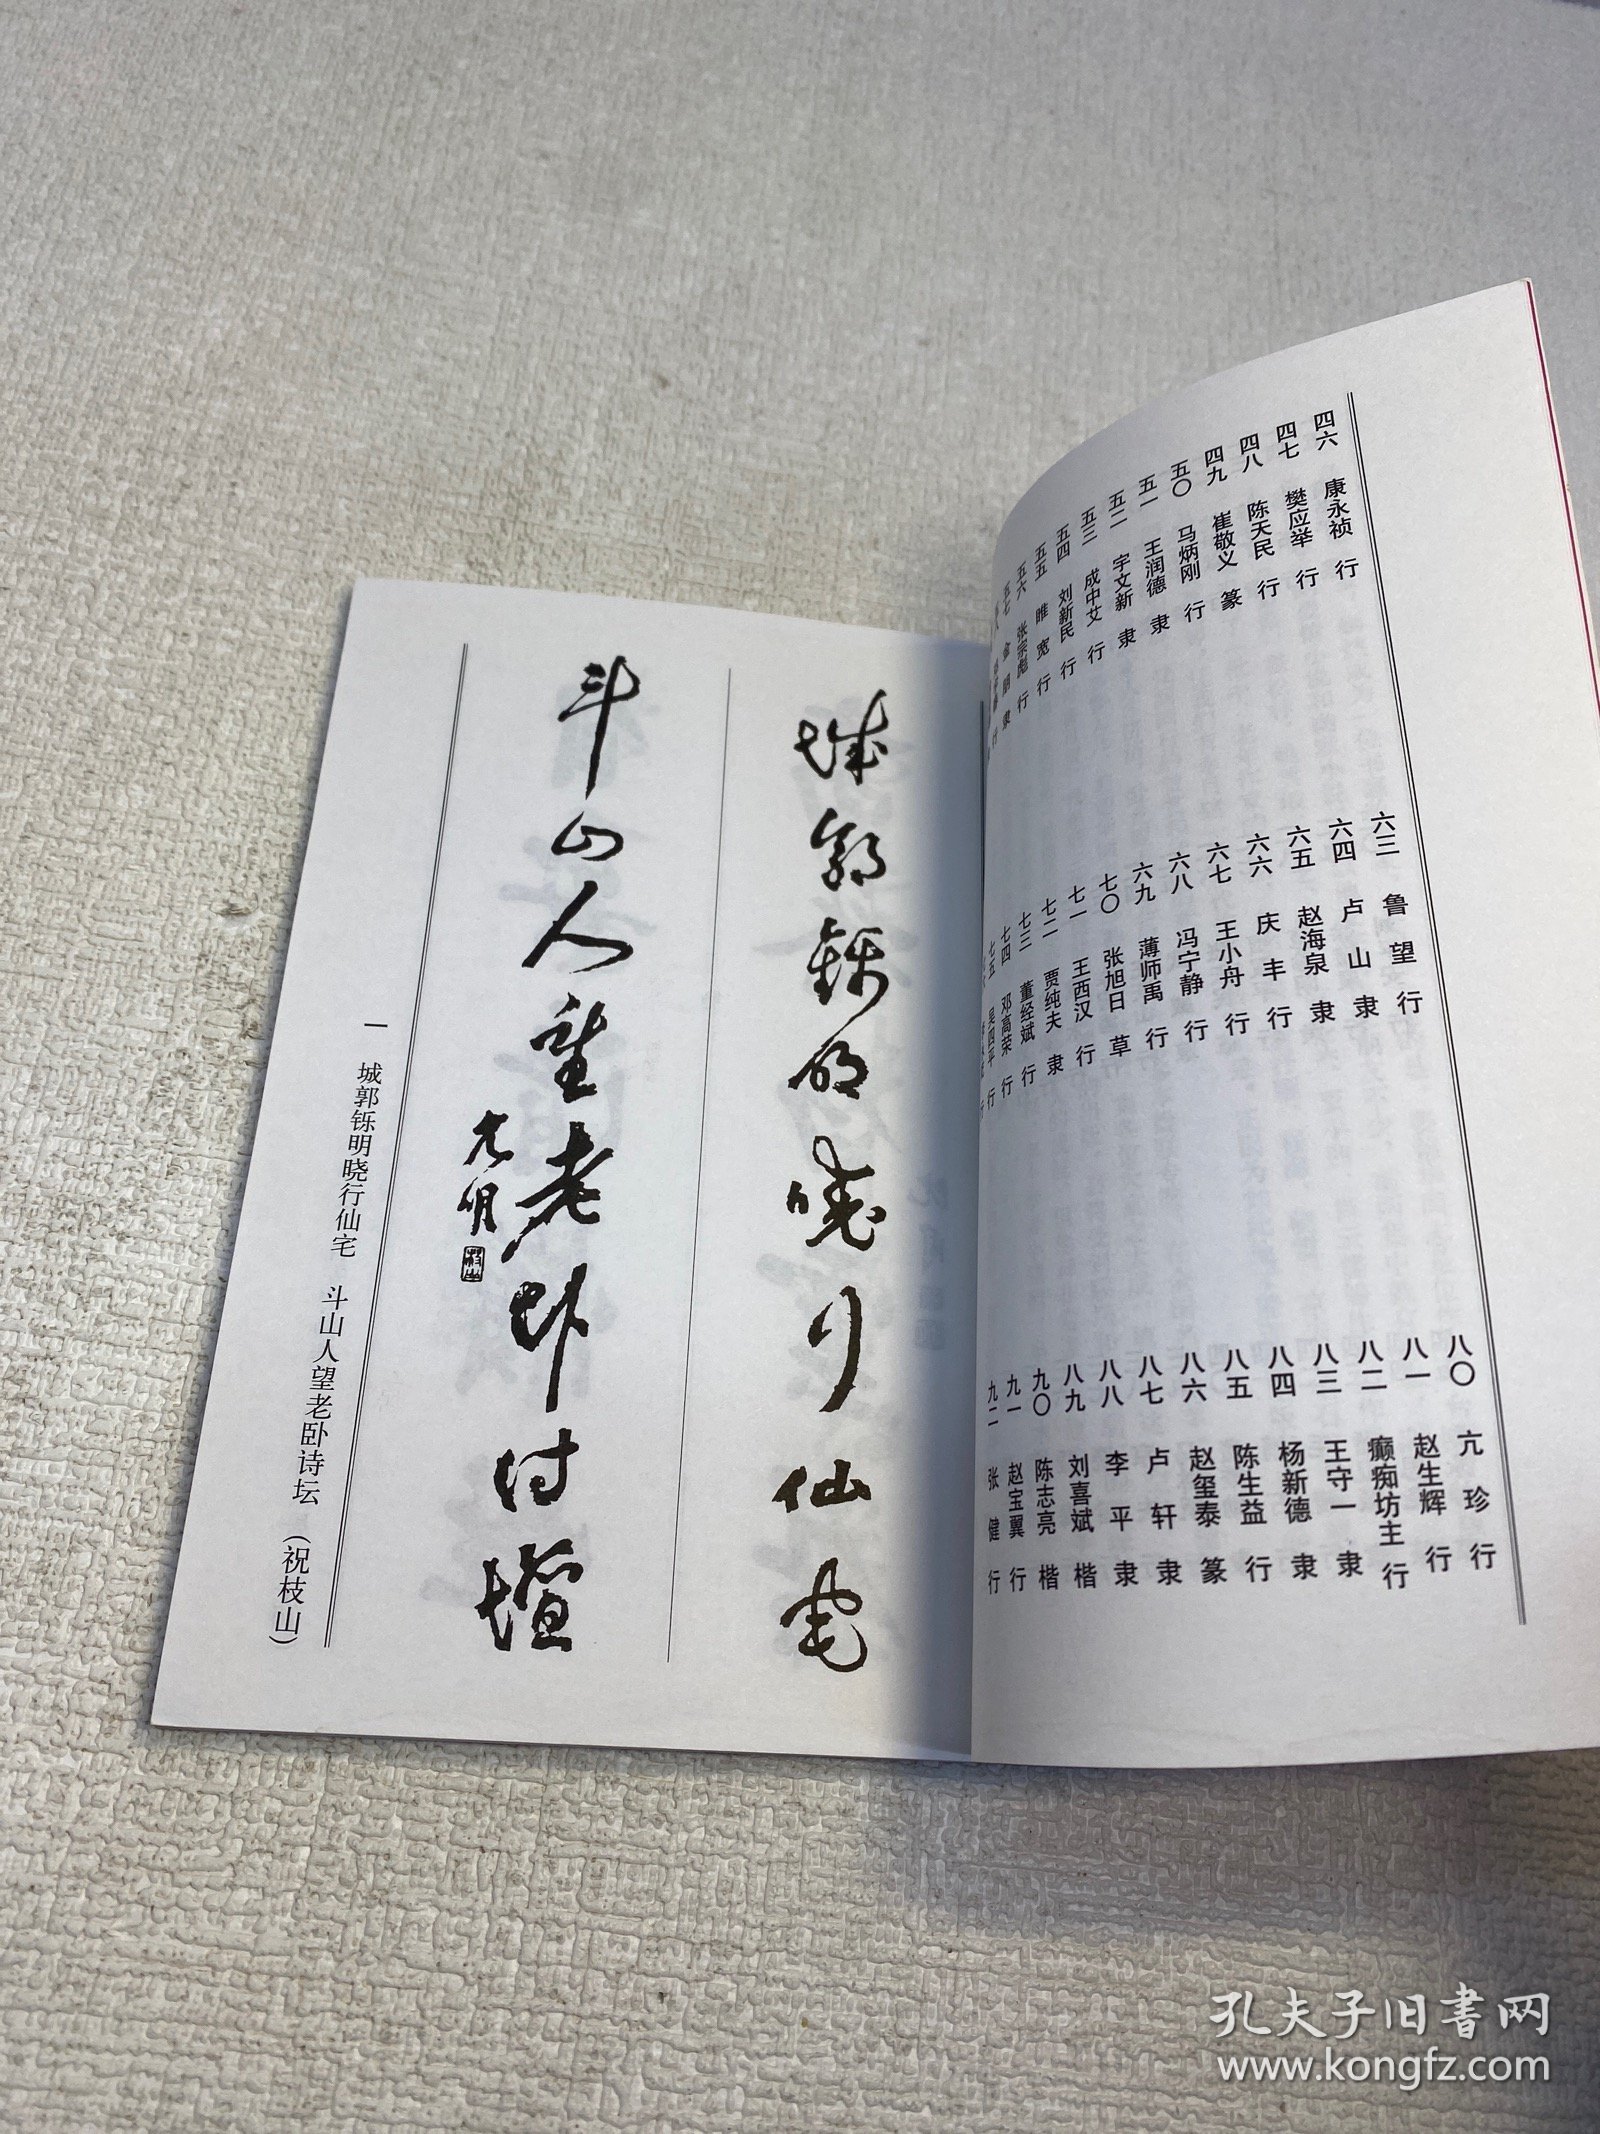 四六 康永祯 行
四七 樊应举 行
四八 陈天民 行
四九 崔敬义 篆
五〇 马炳刚 行
五一 王润德 隶
五二 宇文新 隶
五三 成中艾 行
五四 刘新民 行
五五 唯宽 行
五六 张宗彪 行
五七 金朋 隶
六三 鲁望 行
六四 卢山 隶
六五 赵海泉 隶
六六 庆丰 行
六七 王小舟 行
六八 冯宁静 行
六九 薄师禹 行
七〇 张旭日 草
七一 王西汉 行
七二 贾纯夫 隶
七三 董经斌 行
七四 邓高荣 行
七五 吴四平 行
八〇 亢珍 行
八一 赵生辉 行
八二 癫痴坊主 行
八三 王守一 隶
八四 杨新德 隶
八五 陈生益 行
八六 赵玺泰 篆
八七 卢轩 隶
八八 李平 隶
八九 刘喜斌 楷
九〇 陈志亮 楷
九一 赵宝翼 行
九二 张健 行
城郭鑠明曉行仙宅
斗山人望老卧诗壇
允明
一 城郭铄明晓行仙宅 斗山人望老卧诗坛 （祝枝山）
孔夫子旧书网
www.kongfz.com